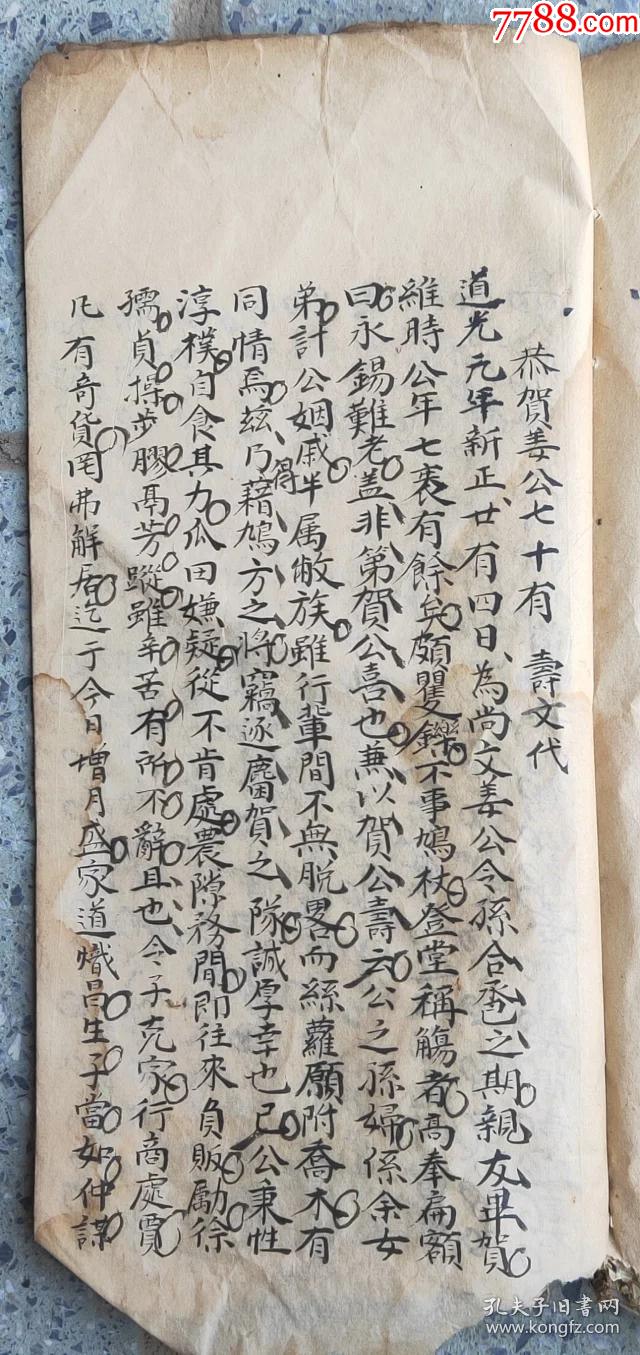 7788.com
恭賀姜公七十有　壽文代
道光元年新正廿有四日、為尚文姜公令孫合巹之期親友畢賀
維時公年七袠有餘矣頗矍鑠不事鳩杖登堂稱觴者高奉扁額
曰永錫難老蓋非第賀公喜也兼以賀公壽云公之孫婦係余女
弟計公姻戚半属敝族雖行輩間不無脫畧而絲蘿願附喬木有
同情焉茲乃得藉鳩方之將竊逐鷹賀之隊誠厚幸也已公秉性
淳樸自食其力瓜田嫌疑從不肯處農隙務間即往來負販勵徐
孺貞操步膠鬲芳蹤雖辛苦有所不辭且也令子克家行商處賈
凡有奇貨罔弗解居迄于今日增月盛家道熾昌生子當如仲謀
孔夫子旧書网
www.kongfz.com